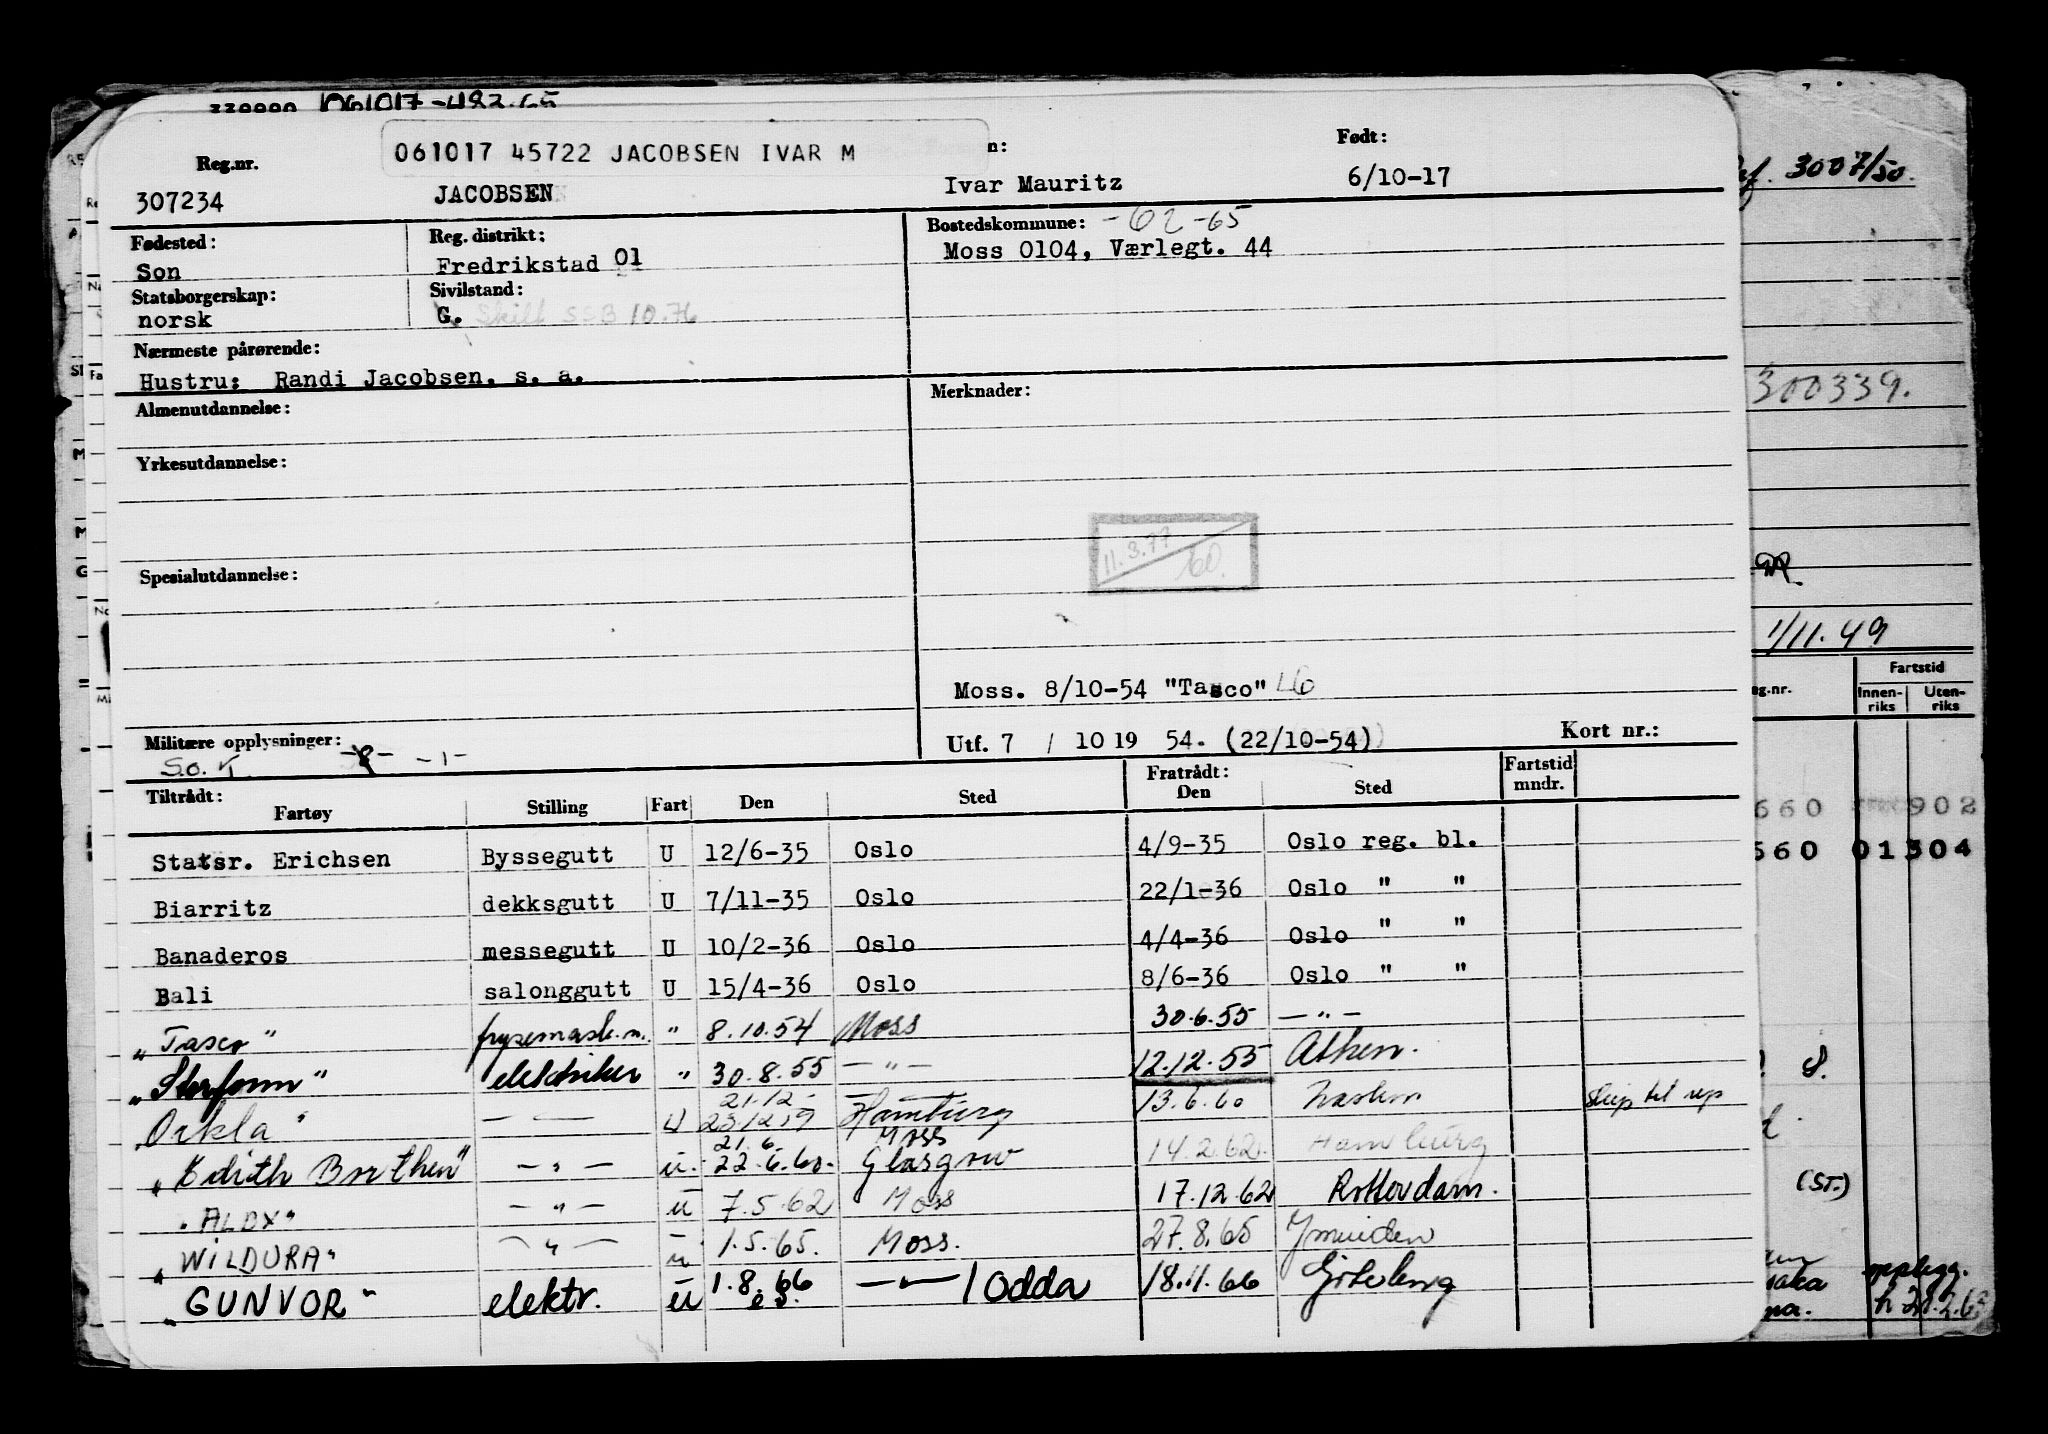 061017-482.65
061017 45722 JACOBSEN IVAR M
n: Født:
Reg.nr.
307234 JACOBSEN Ivar Mauritz 6/10-17
Fødested: Reg. distrikt: Bostedskommune: -02-65
Son Fredrikstad 01 Moss 0104, Værlegt. 44
Statsborgerskap: Sivilstand:
norsk G. Skilt SSB 10.76
Nærmeste pårørende:
Hustru: Randi Jacobsen. s. a.
Almenutdannelse: Merknader:
Yrkesutdannelse:
11.3.77. 60.
Spesialutdannelse:
Moss. 8/10-54 "Tasco" L6
Militære opplysninger: Utf. 7 / 10 19 54. (22/10-54) Kort nr.:
S.o. T. -1-
Tiltrådt: Fratrådt: Fartstid
Fartøy Stilling Fart Den Sted Den Sted mndr.
Statsr. Erichsen Byssegutt U 12/6-35 Oslo 4/9-35 Oslo reg. bl.
Biarritz dekksgutt U 7/11-35 Oslo 22/1-36 Oslo " "
Banaderos messegutt U 10/2-36 Oslo 4/4-36 Oslo " "
Bali salonggutt U 15/4-36 Oslo 8/6-36 Oslo " "
"Tasco" frysemask.m. " 8.10.54 Moss 30.6.55 — " —
"Storfonn" elektriker " 30.8.55 — " — 12.12.55 Athen.
21.12. — —
"Orkla" — — U 23.12.59 Hamburg 13.6.60 skip til rep
21.6. Moss
"Edith Borthen" — " — u. 22.6.60. Glasgow 14.2.62. Hamburg
"ALDX" — " — u 7.5.62 Moss 17.12.62 Rotterdam.
"WILDURA" — " — u 1.5.65. Moss. 27.8.65 Ymuiden
"GUNVOR" elektr. u 1.8.66 — " — / Odda 18.11.66 Göteborg
3007/50.
300339.
1/11.49
Fartstid
g.nr. Innen- Uten-
riks riks
660 902
560 01304
8.
(ST.)
opplegg.